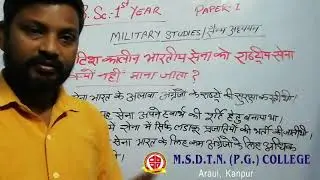 B.Sc. 1st YEAR PAPER-I
MILITARY STUDIES/सैन्य अध्ययन
कालीन भारतीय सेना को राष्ट्रीय सेना
क्यों नहीं माना जाता?
सेना भारत के अलावा अंग्रेजों के राष्ट्र की सुरक्षा
अपने स्वार्थ की पूर्ति हेतु बनाया था।
सेना में सिर्फ लड़ाकू प्रजातियों की भर्ती की जाती थी।
सेना भारत के लिए कम अंग्रेजों के लिए अधिक
M.S.D.T.N. (P.G.) COLLEGE
Araul, Kanpur